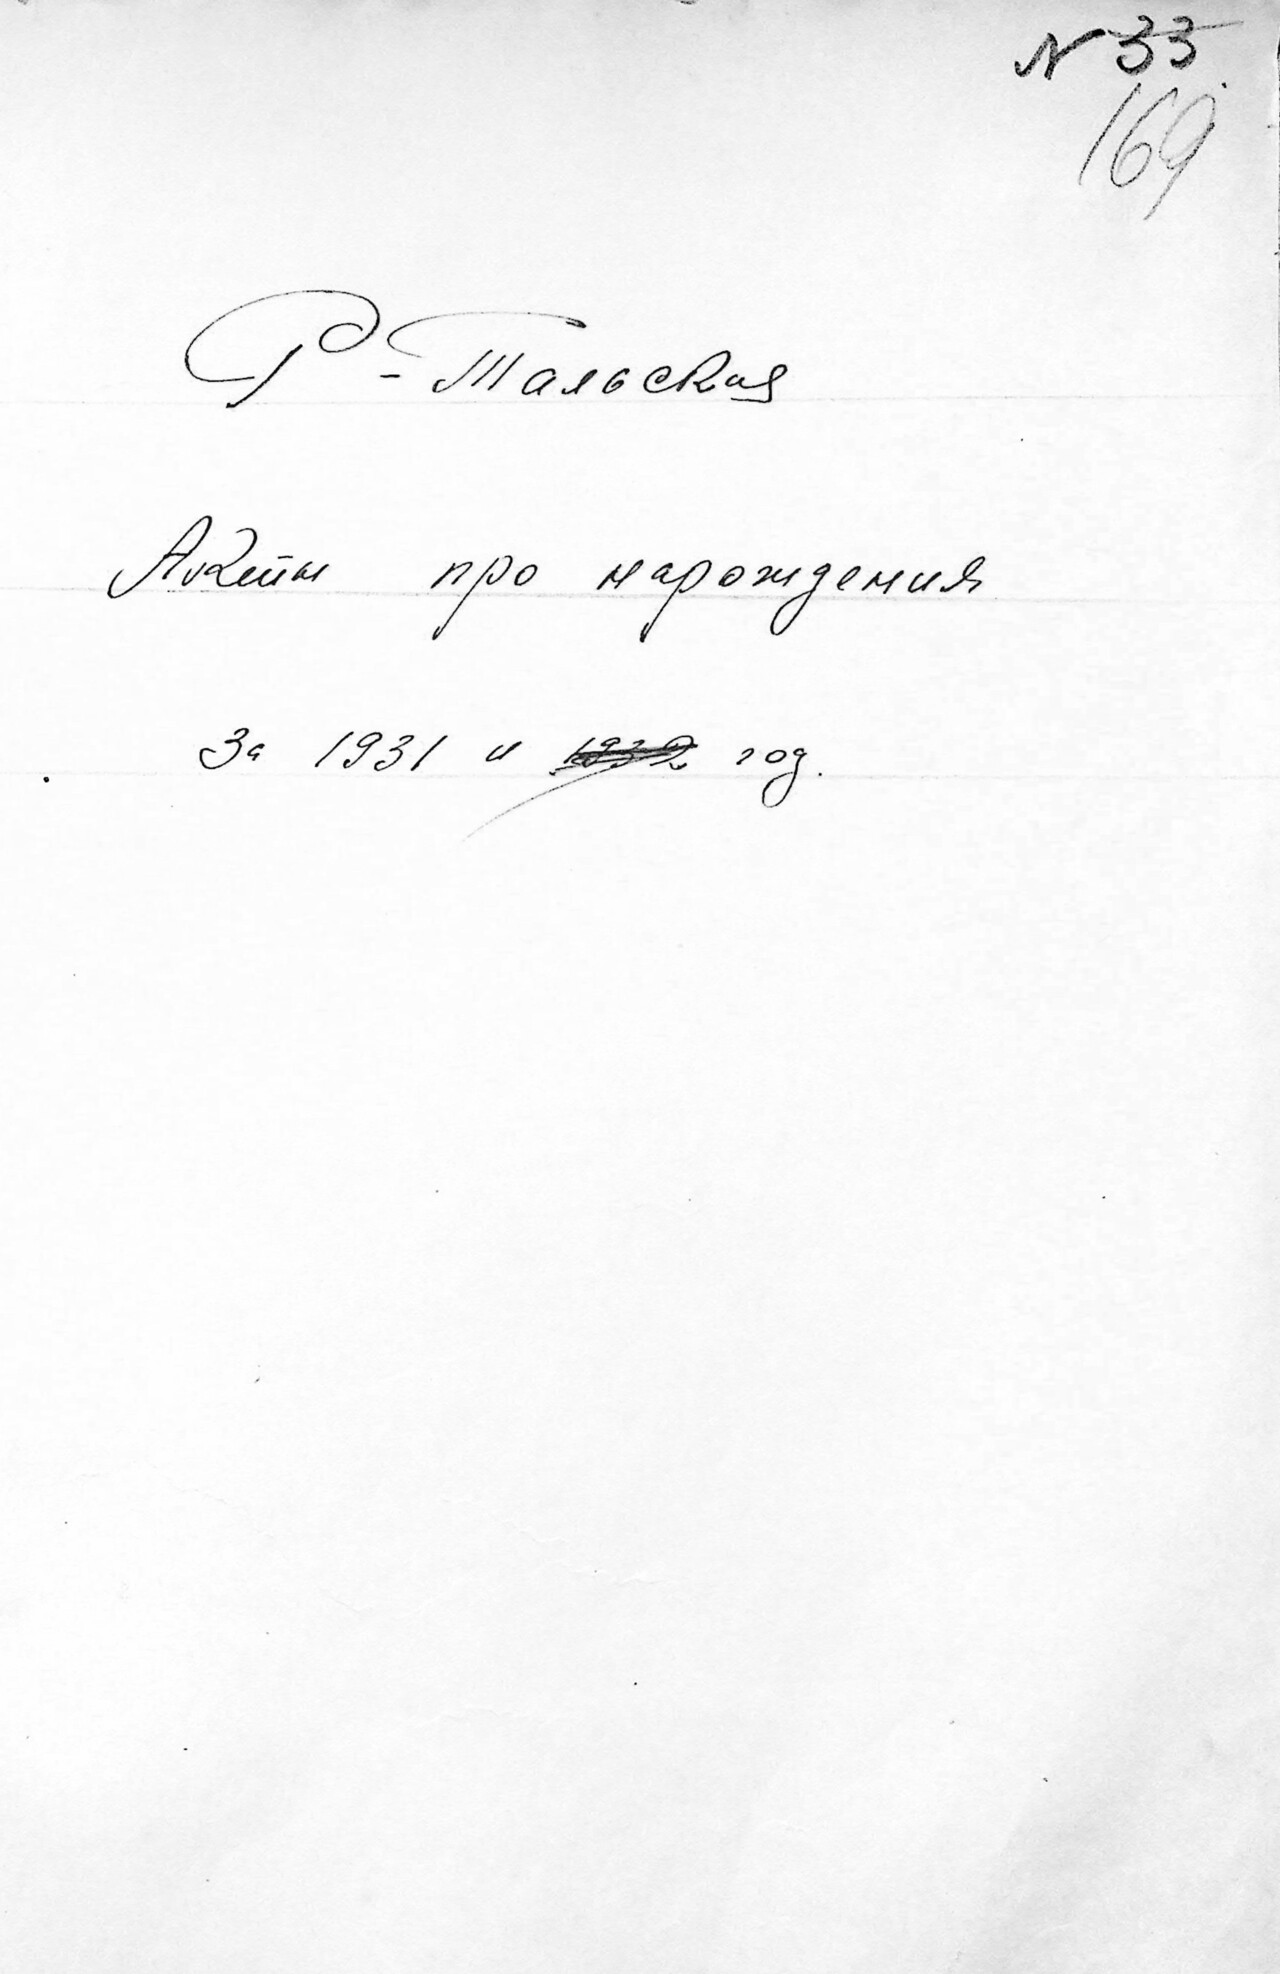 N 33
169
Р-Тальская
Акты про нарождения
За 1931 и 1932 год.